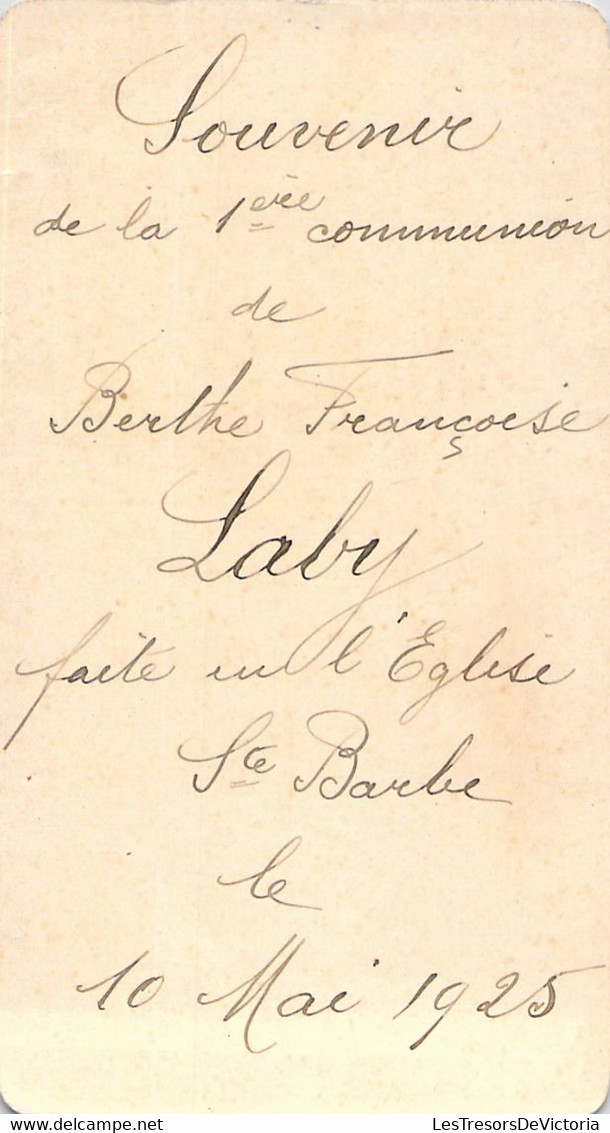 Souvenir
de la 1ère communion
de
Berthe Françoise
Laby
faite en l'Eglise
Ste Barbe
le
10 Mai 1925
delcampe.net
LesTresorsDeVictoria